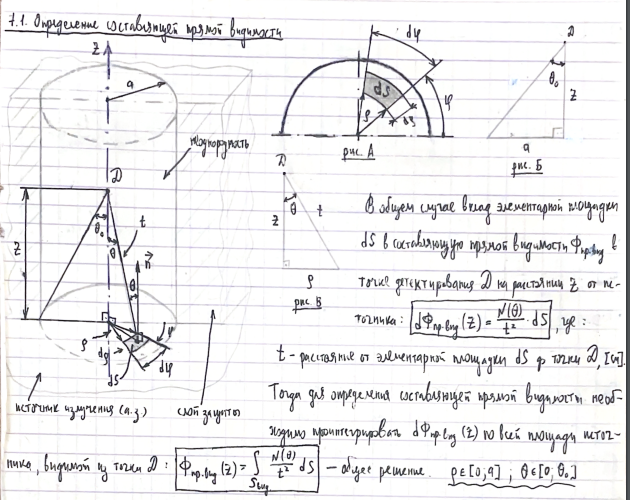 7.1. Определение составляющей прямой видимости
z
a
неоднородность
D
θ₀
θ
t
z
n
θ
ρ
dρ
dS
φ
dφ
источник излучения (а.з.)
слой защиты
dφ
dS
ρ
dρ
φ
рис. А
D
θ₀
z
a
рис. Б
D
θ
t
z
ρ
рис. В
В общем случае вклад элементарной площадки
dS в составляющую прямой видимости Φпр.вид в
точке детектирования D на расстоянии z от ис-
точника: dΦпр.вид(z) = N(θ)/t² · dS, где:
t - расстояние от элементарной площадки dS до точки D, [см].
Тогда для определения составляющей прямой видимости необ-
ходимо проинтегрировать dΦпр.вид(z) по всей площади источ-
ника, видимой из точки D: Φпр.вид(z) = ∫Sвид N(θ)/t² dS - общее решение. ρ∈[0,a]; θ∈[0,θ₀]